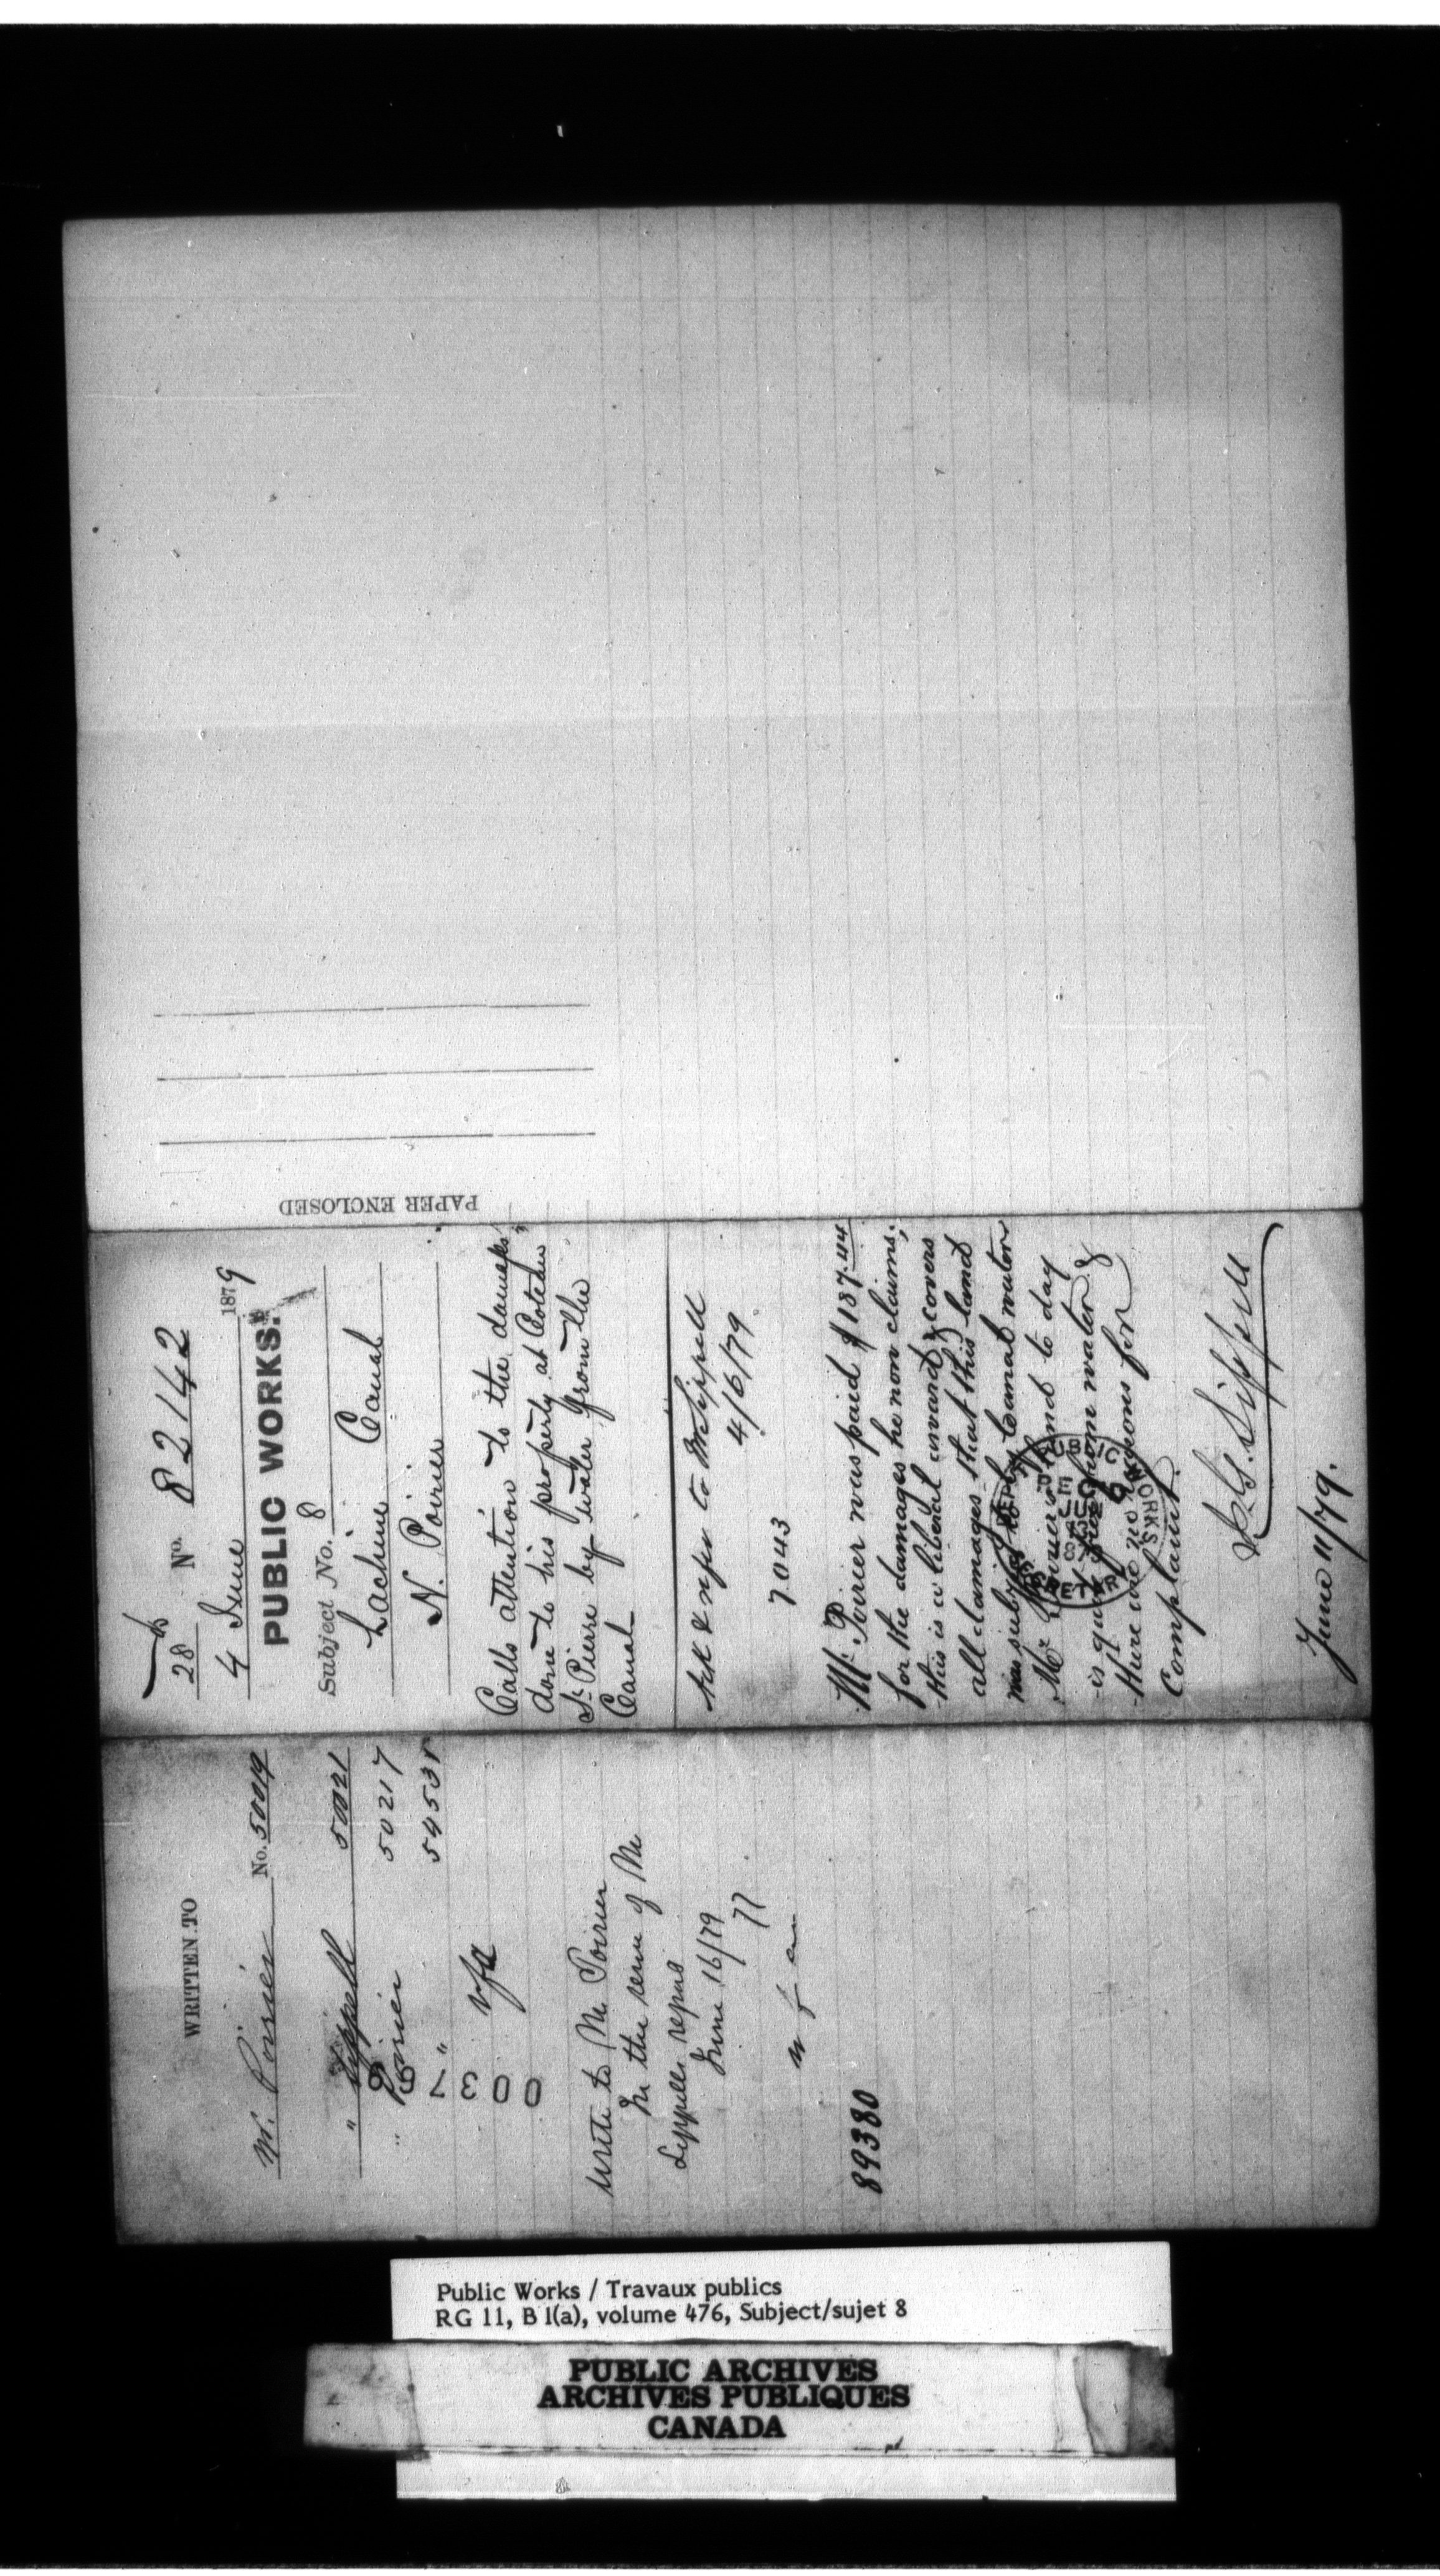 WRITTEN TO
Mr. Poirier No. 50019
" Sippell 50021
" Poirier 50217
" 54535
003796
write to Mr Poirier
in the sense of Mr
Sippells report
June 16/79
89380
28 No. 82142
4 June 1879
PUBLIC WORKS.
Subject No. 8
Lachine Canal
N. Poirier
Calls attention to the damages
done to his property at Coteau
St. Pierre by water from the
Canal
Ack & refer to Mr Sippell
4/6/79
7043
Mr. Poirier was paid $187.44
for the damages he now claims;
this is a liberal award & covers
all damages that this land
was subject to by canal water
Mr Poirier's land to day
is quite free from water &
there are no reasons for
complaint.
PUBLIC WORKS
June 11/79.
PAPER ENCLOSED
Public Works / Travaux publics
RG 11, B 1(a), volume 476, Subject/sujet 8
PUBLIC ARCHIVES
ARCHIVES PUBLIQUES
CANADA